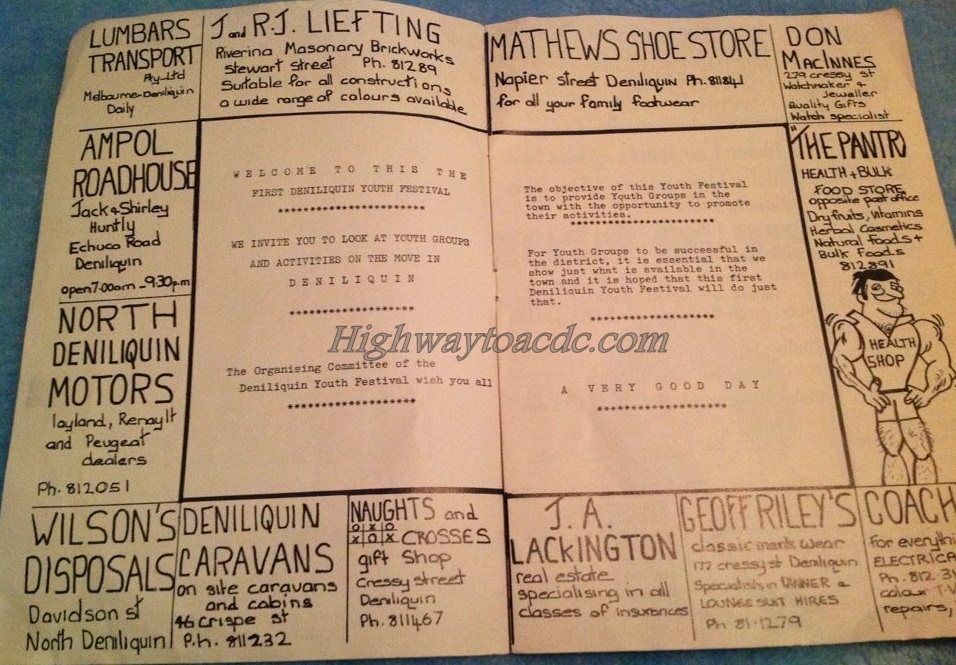 LUMBARS
TRANSPORT
Pty-Ltd
Melbourne-Deniliquin
Daily
J and R.J. LIEFTING
Riverina Masonary Brickworks
Stewart Street Ph. 81289
Suitable for all constructions
a wide range of colours available
MATHEWS SHOE STORE
Napier street Deniliquin Ph. 811841
for all your family footwear
DON
MacINNES
279 cressy st
Watchmaker &
Jeweller
Quality Gifts
Watch specialist
AMPOL
ROADHOUSE
Jack & Shirley
Huntly
Echuca Road
Deniliquin
open 7.00am - 9.30p.m
NORTH
DENILIQUIN
MOTORS
layland, Renault
and Peugeat
dealers
Ph. 812051
WELCOME TO THIS THE
FIRST DENILIQUIN YOUTH FESTIVAL
********************
WE INVITE YOU TO LOOK AT YOUTH GROUPS
AND ACTIVITIES ON THE MOVE IN
DENILIQUIN
*****************
The Organising Committee of the
Deniliquin Youth Festival wish you all
******************
The objective of this Youth Festival
is to provide Youth Groups in the
town with the opportunity to promote
their activities.
********************
For Youth Groups to be successful in
the district, it is essential that we
show just what is available in the
town and it is hoped that this first
Deniliquin Youth Festival will do just
that.
*****************
A VERY GOOD DAY
******************
Highwaytoacdc.com
"THE PANTRY
HEALTH + BULK
FOOD STORE
opposite post office
Dry fruits, Vitamins
Herbal Cosmetics
Natural Foods +
Bulk Foods
812891
HEALTH
SHOP
WILSON'S
DISPOSALS
Davidson st
North Deniliquin
DENILIQUIN
CARAVANS
on site caravans
and cabins
46 crispe st
P.h. 811232
NAUGHTS and
OXO
XOX CROSSES
gift Shop
Cressy street
Deniliquin
Ph. 811467
J. A.
LACKINGTON
real estate
specialising in all
classes of insurances
GEOFF RILEY'S
classic mens wear
177 cressy st Deniliquin
Specialists in DINNER &
LOUNGE SUIT HIRES
Ph 81-1279
COACH
For everythi
ELECTRICA
Ph. 812-31
colour T.V
repairs,